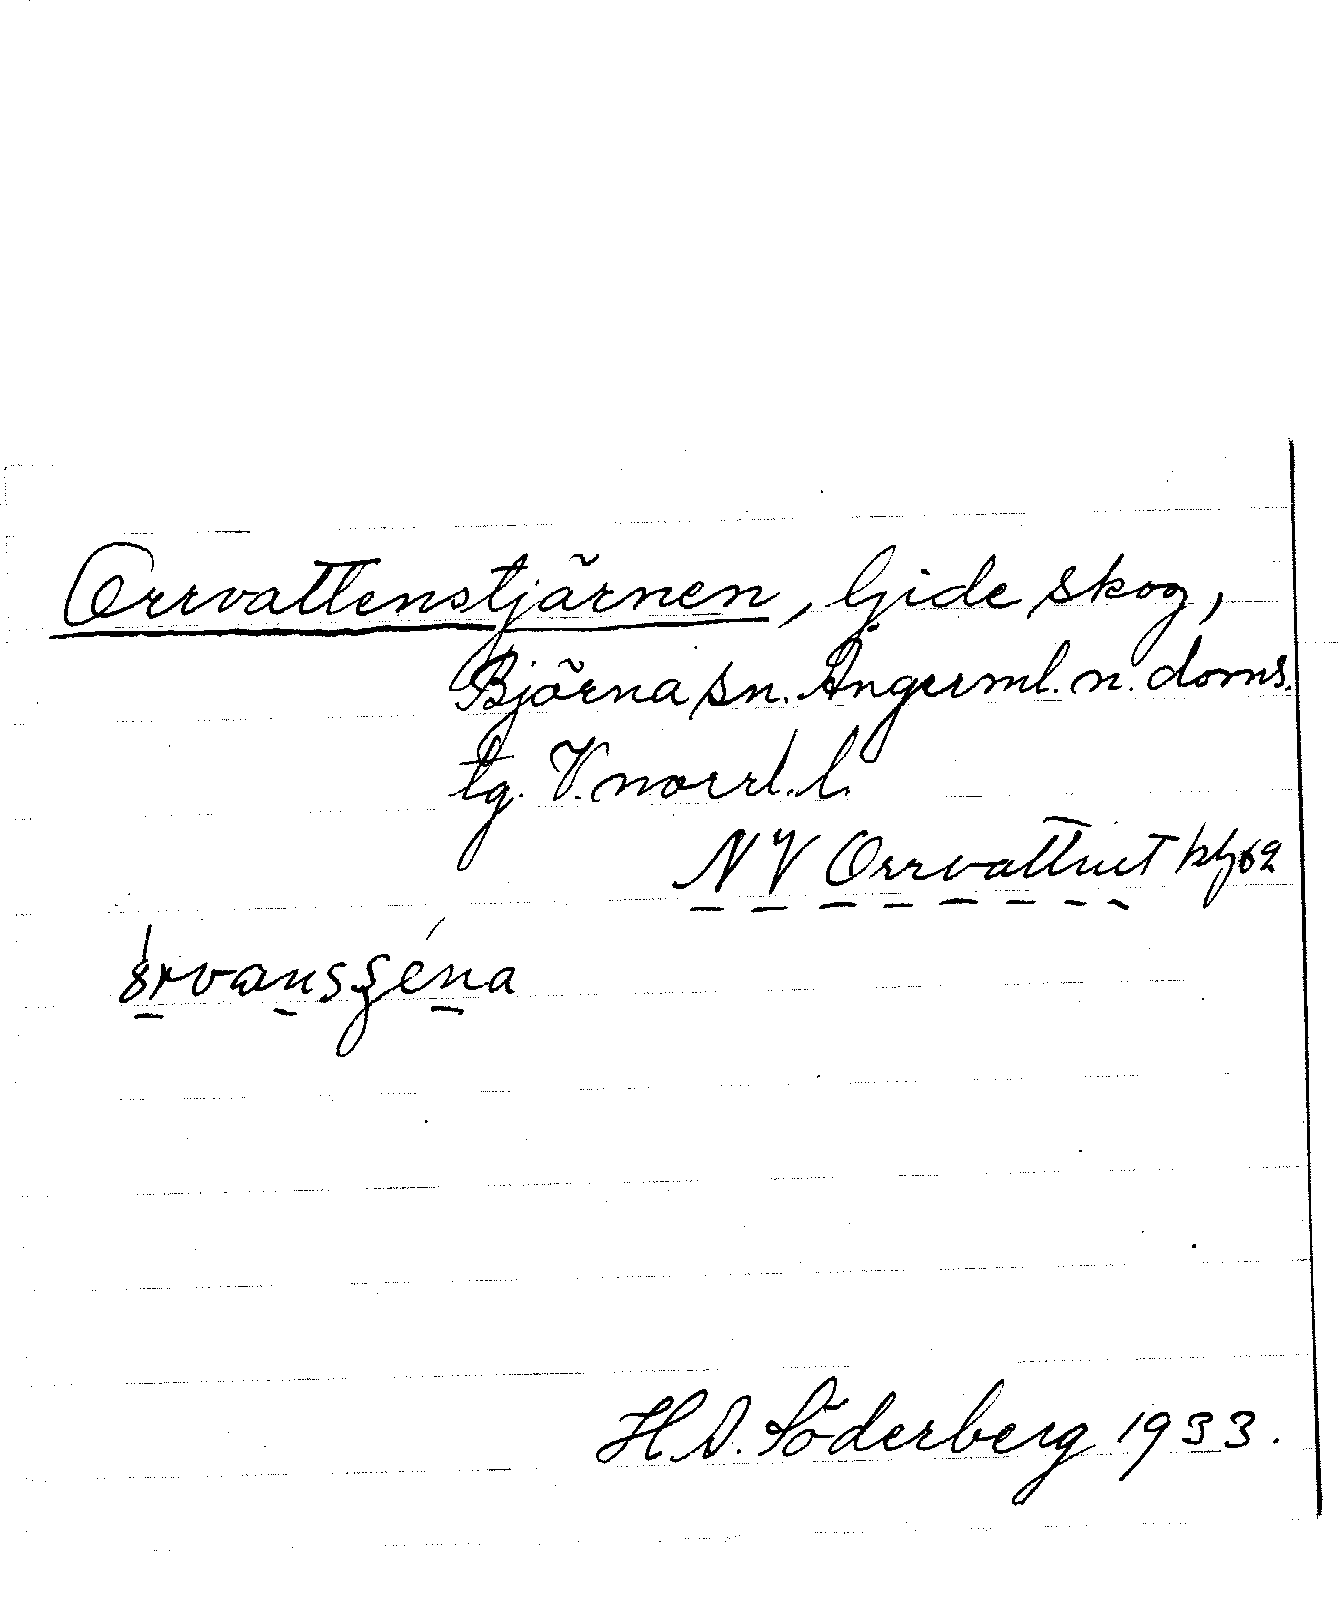 Orrvattenstjärnen, Gide skog,
Björna sn. Ångerml. n. doms.
tg. V.norrl. l.
NV Orrvattnet
H.D. Söderberg 1933.